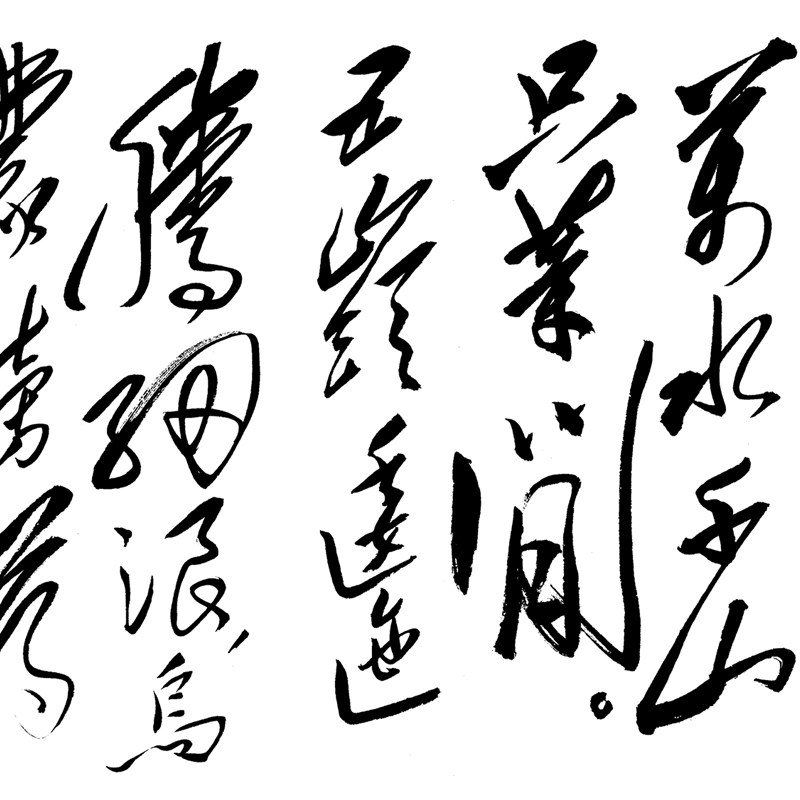 萬水千山
只等閒。
五嶺逶迤
騰細浪烏